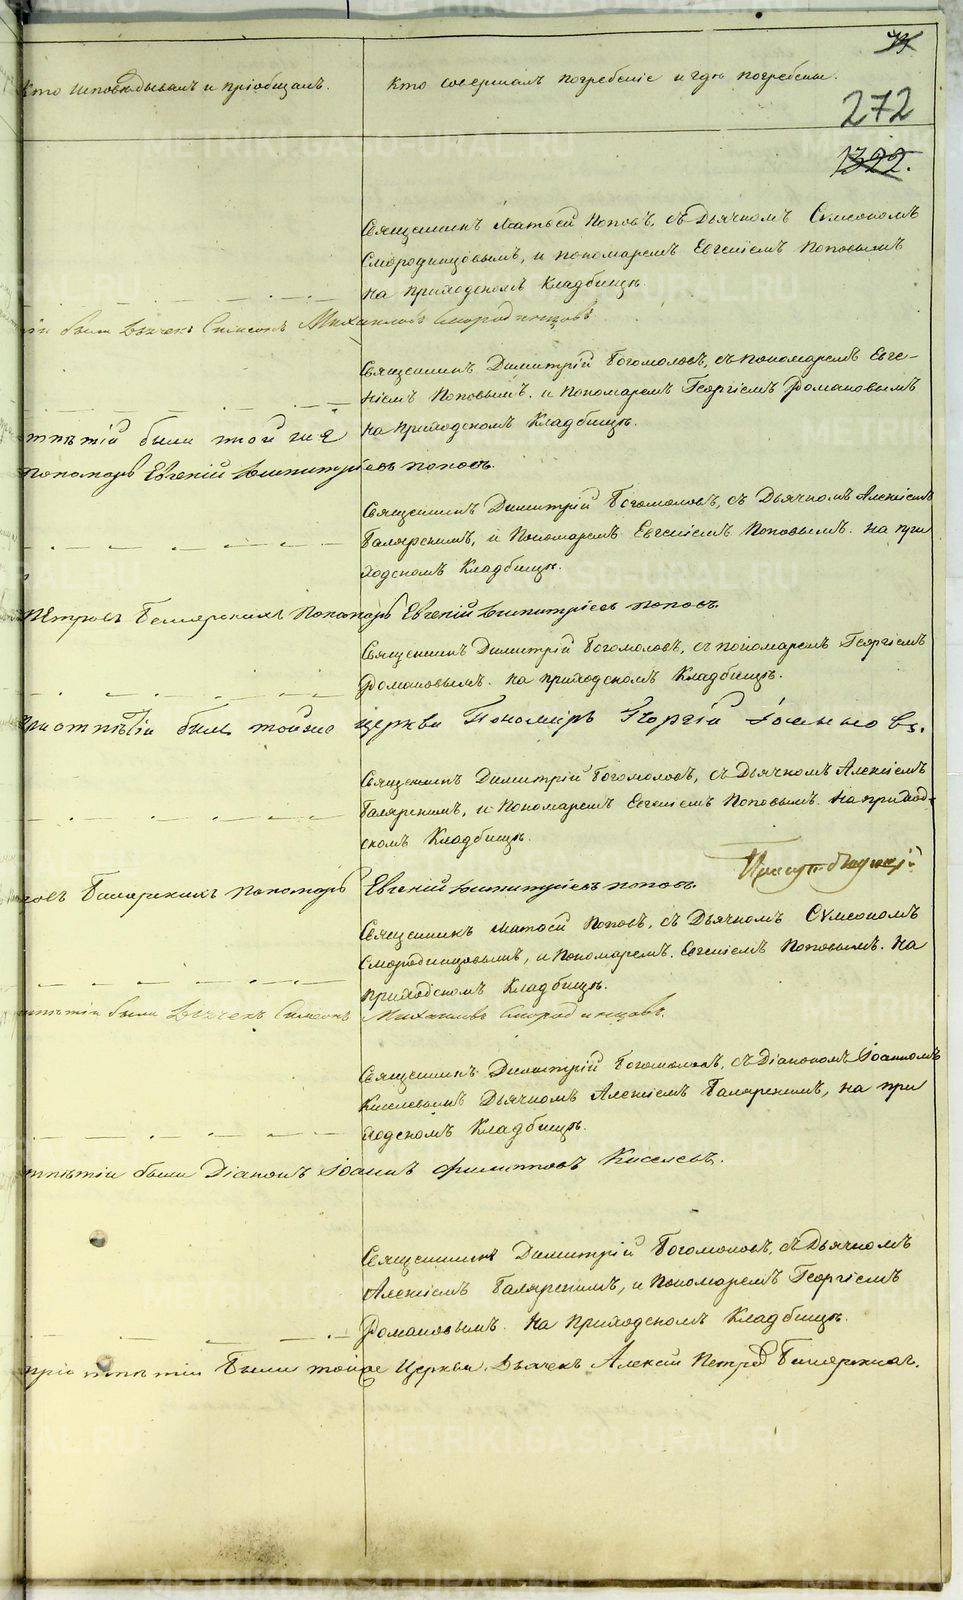 Кто исповѣдывалъ и пріобщалъ.
Кто совершалъ погребеніе и гдѣ погребены.
272
1322.
Священникъ Матѳей Поповъ, съ Дьячкомъ Сѵмеономъ
Смородинцовымъ, и пономаремъ Евгеніемъ Поповымъ
на приходскомъ Кладбищѣ.
были Дьячекъ Симеонъ Михаиловъ Смородинцовъ
Священникъ Димитрій Богомоловъ, съ пономаремъ Евге-
ніемъ Поповымъ, и Пономаремъ Георгіемъ Романовымъ
на Приходскомъ Кладбищѣ.
отпѣтіи были той же
пономарь Евгеній Димитріевъ Поповъ.
Священникъ Димитрій Богомоловъ, съ Дьячкомъ Алексіемъ
Баляркинымъ, и Пономаремъ Евгеніемъ Поповымъ. на при
ходскомъ Кладбищѣ.
Петровъ Пономарь Евгеній Димитріевъ Поповъ.
Священникъ Димитрій Богомоловъ, съ пономаремъ Георгіемъ
Романовымъ. на приходскомъ Кладбищѣ.
при отпѣтіи былъ тойже церкви Пономарь Георгій Іоанновъ.
Священникъ Димитрій Богомоловъ, съ Дьячкомъ Алексіемъ
и Пономаремъ Евгеніемъ Поповымъ. на приход-
скомъ Кладбищѣ.
пономарь Евгеній Димитріевъ Поповъ.
Священникъ Матѳей Поповъ, съ Дьячкомъ Сѵмеономъ
Смородинцовымъ, и Пономаремъ Евгеніемъ Поповымъ. на
приходскомъ Кладбищѣ.
отпѣтіи были Дьячекъ Симеонъ Михаиловъ Смородинцовъ.
Священникъ Димитрій Богомоловъ, съ Діакономъ Іоанномъ
Киселевымъ Дьячкомъ Алексіемъ на при
ходскомъ Кладбищѣ.
отпѣтіи были Діаконъ Іоаннъ Филипповъ Киселевъ.
Священникъ Димитрій Богомоловъ, съ Дьячкомъ
Алексіемъ и Пономаремъ Георгіемъ
Романовымъ. на Приходскомъ Кладбищѣ.
при отпѣтіи были тойже Церкви Дьячекъ Алексій Петровъ